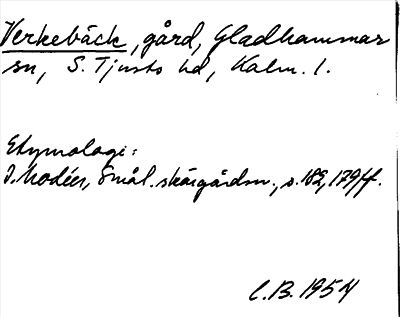 Verkebäck, gård, Gladhammar
sn, S. Tjusts hd, Kalm. l.
Etymologi:
I. Modéer, Smål. skärgårdsn., s. 182, 179 ff.
C.B. 1954